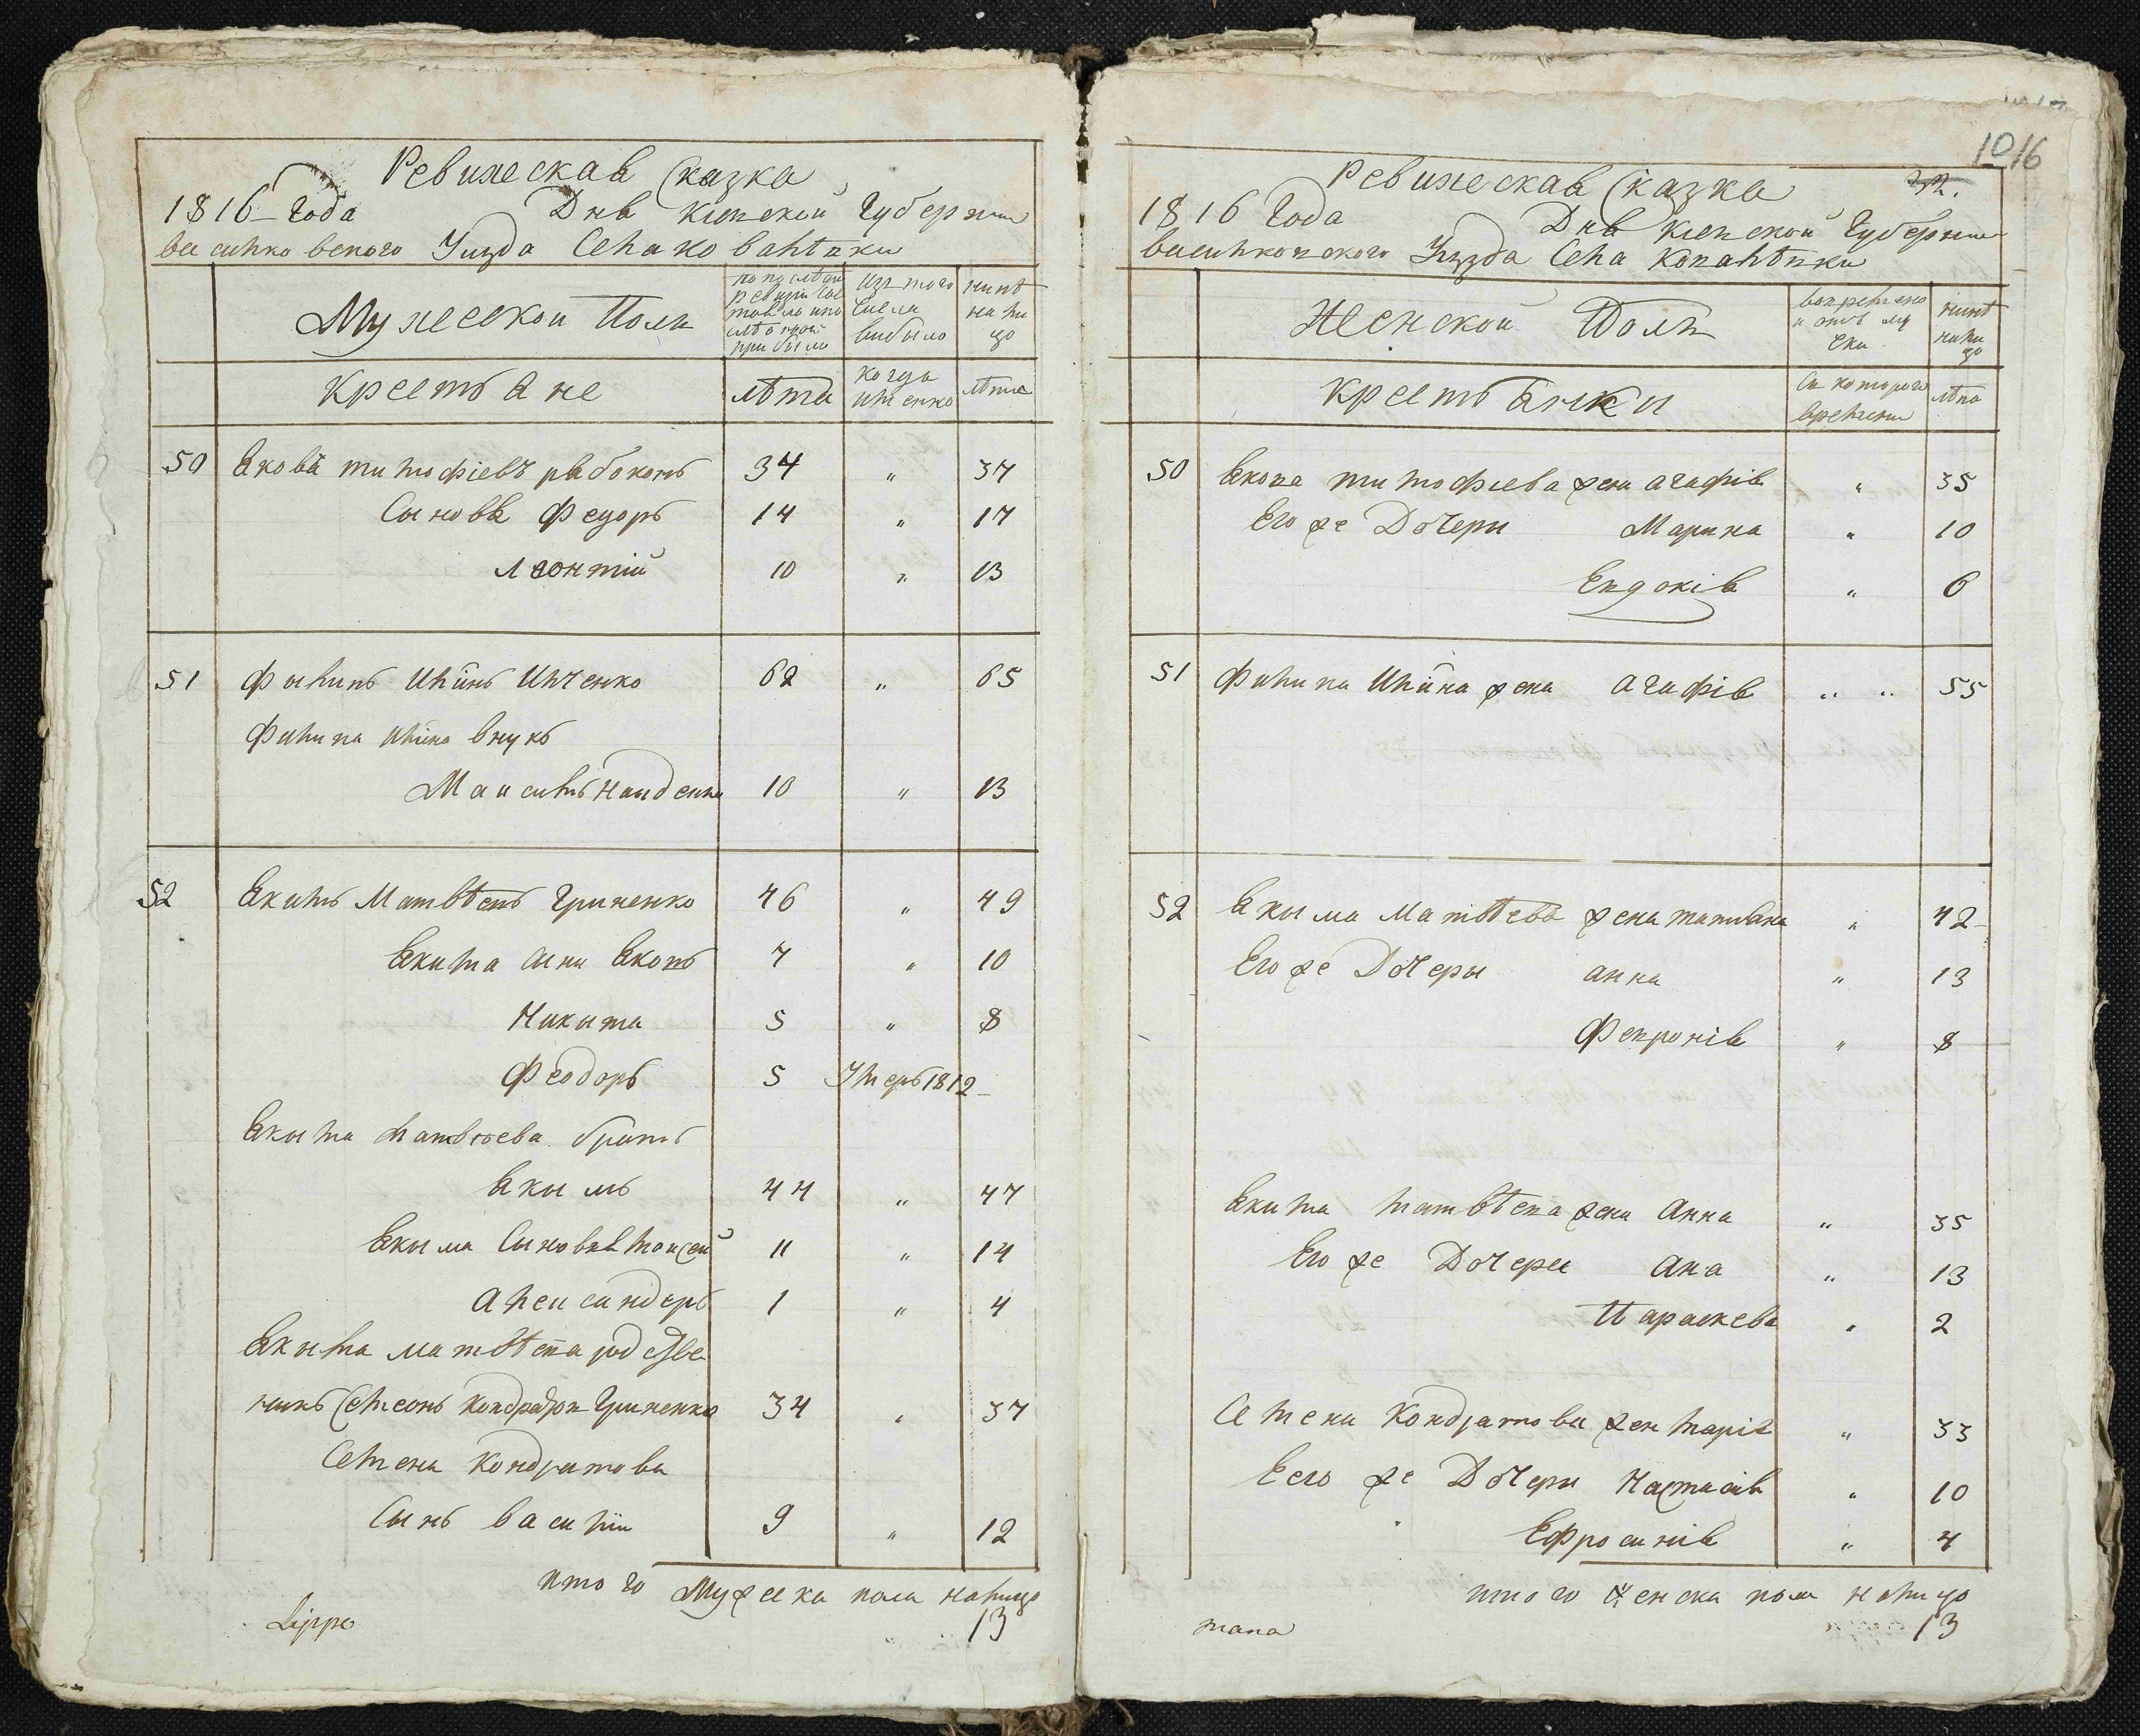 Ревижская Сказка
1816 Года Дня Кіевской Губерніи
васильковского Уизда Села ковалѣвки
Мужеской Полъ
по послѣдней ревизіи состояло и послѣ оной прибыло
Изъ того Числа выбыло
нинѣ на лицо
крестьяне
лѣта
когда имянно
лѣта
50 Яковъ тимофіевъ рябоконь 34 " 37
Сыновья Федоръ 14 " 17
Леонтій 10 " 13
51 Филипъ Ильинъ Ильченко 62 " 65
Филипа Ильина внукъ
Максимъ 10 " 13
52 Якимъ Матвѣевъ Гриненко 46 " 49
Якима сини Яковъ 7 " 10
Никита 5 " 8
Феодоръ 5 Умеръ 1812
Якима Матвіоева братъ
Якимъ 44 " 47
Якима Сыновья Моисей 11 " 14
Александеръ 1 " 4
Якима матвѣева родстве
никъ Семеонъ Кондратов Гриненко 34 " 37
Семена Кондратова
Сынъ василіи 9 " 12
итого Мужеска пола налицо
13
1016
Ревижская Сказка
1816 Года Дня Кіевской Губерніи
васильковского Уизда Села Ковалѣвки
Женской Полъ
нинѣ налицо
крестьянки
Съ которого времени
лѣта
50 Якова тимофиева жена агафія " 35
Его же Дочери Марина " 10
Евдокія " 6
51 Филипа Ильина жена агафія " " 55
52 Якима Матвѣева жена татияна " 42
Его же Дочеры анна " 13
Февронія " 8
Якима матвѣева жена Анна " 35
Его же Дочеры Ана " 13
Параскева " 2
Семена Кондратова жен марія " 33
Его же Дочери Настасія " 10
Ефросинія " 4
итого женска пола налицо
13